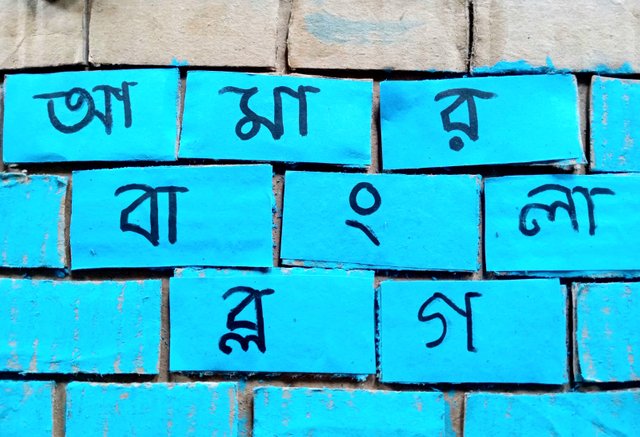 আমার
বাংলা
ব্লগ